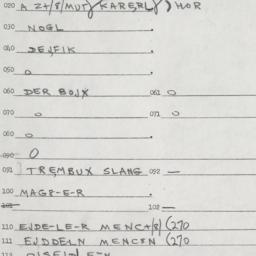 020 A Z+/8/MUT KARERL HOR
030 NOGL
040 DEJFIK
050 0
060 DER BOJX 061 0
070 0 071 0
080 0
090 0
091 TREMBUX SLANG 092 —
100 MAGE-E-R
101 — 102 —
110 EJDE-LE-R MENCA/8/ (270
111 EJDDELN MENCEN (270